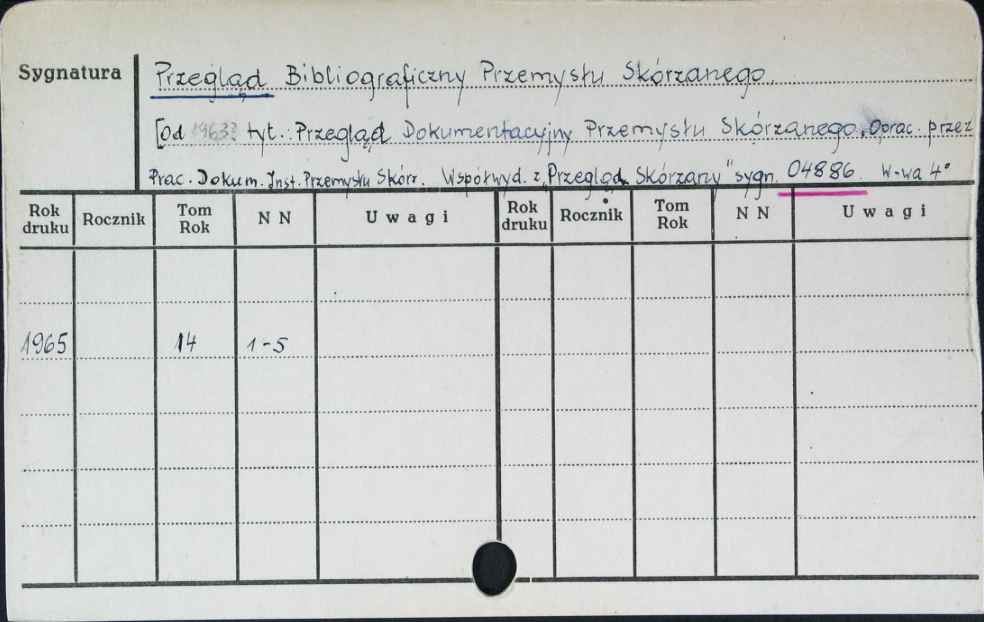 Sygnatura
Przegląd Bibliograficzny Przemysłu Skórzanego.
[Od 1963? tyt.: Przegląd Dokumentacyjny Przemysłu Skórzanego. Oprac. przez
Prac. Dokum. Inst. Przemysłu Skórz. Współwyd. z „Przegląd Skórzany" sygn. 04886. W-wa 4°
Rok druku Rocznik Tom Rok NN Uwagi Rok druku Rocznik Tom Rok NN Uwagi
1965 14 1-5